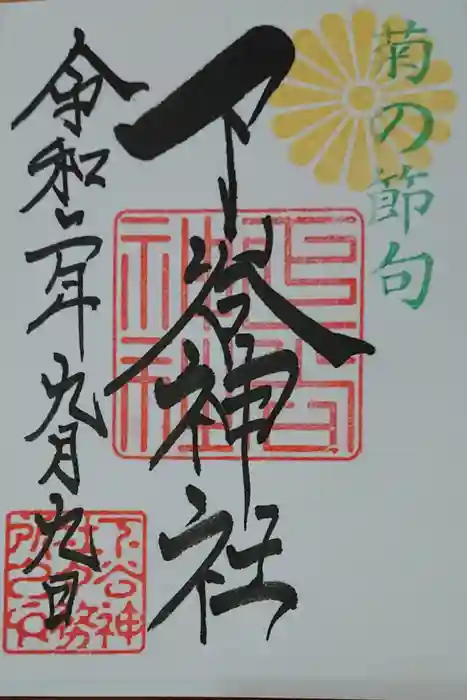 菊の節句
下谷神社
令和二年九月九日
下谷神
社社務
所之印